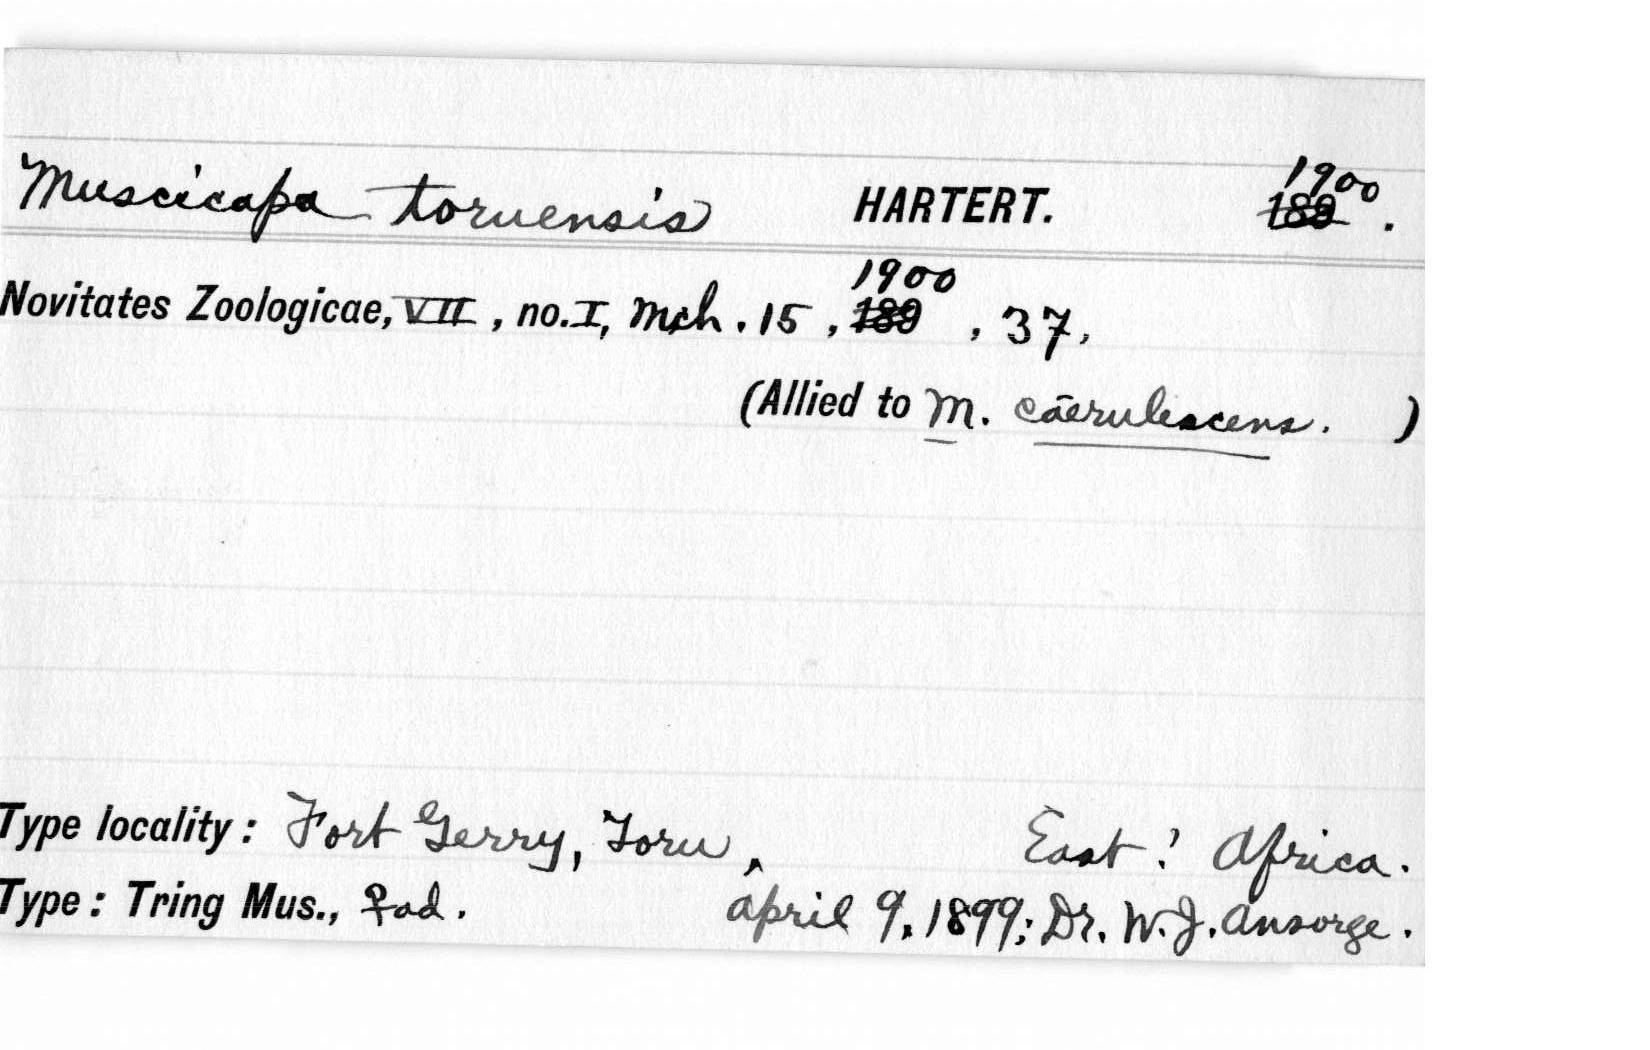 Muscicapa toruensis HARTERT. 1900 189 .
Novitates Zoologicae, VII, no. I, Mch. 15, 1900 189 , 37,
(Allied to M. caerulescens. )
Type locality: Fort Gerry, Toru, East ? Africa.
Type: Tring Mus., ♀ ad. April 9, 1899; Dr. W. J. Ansorge.